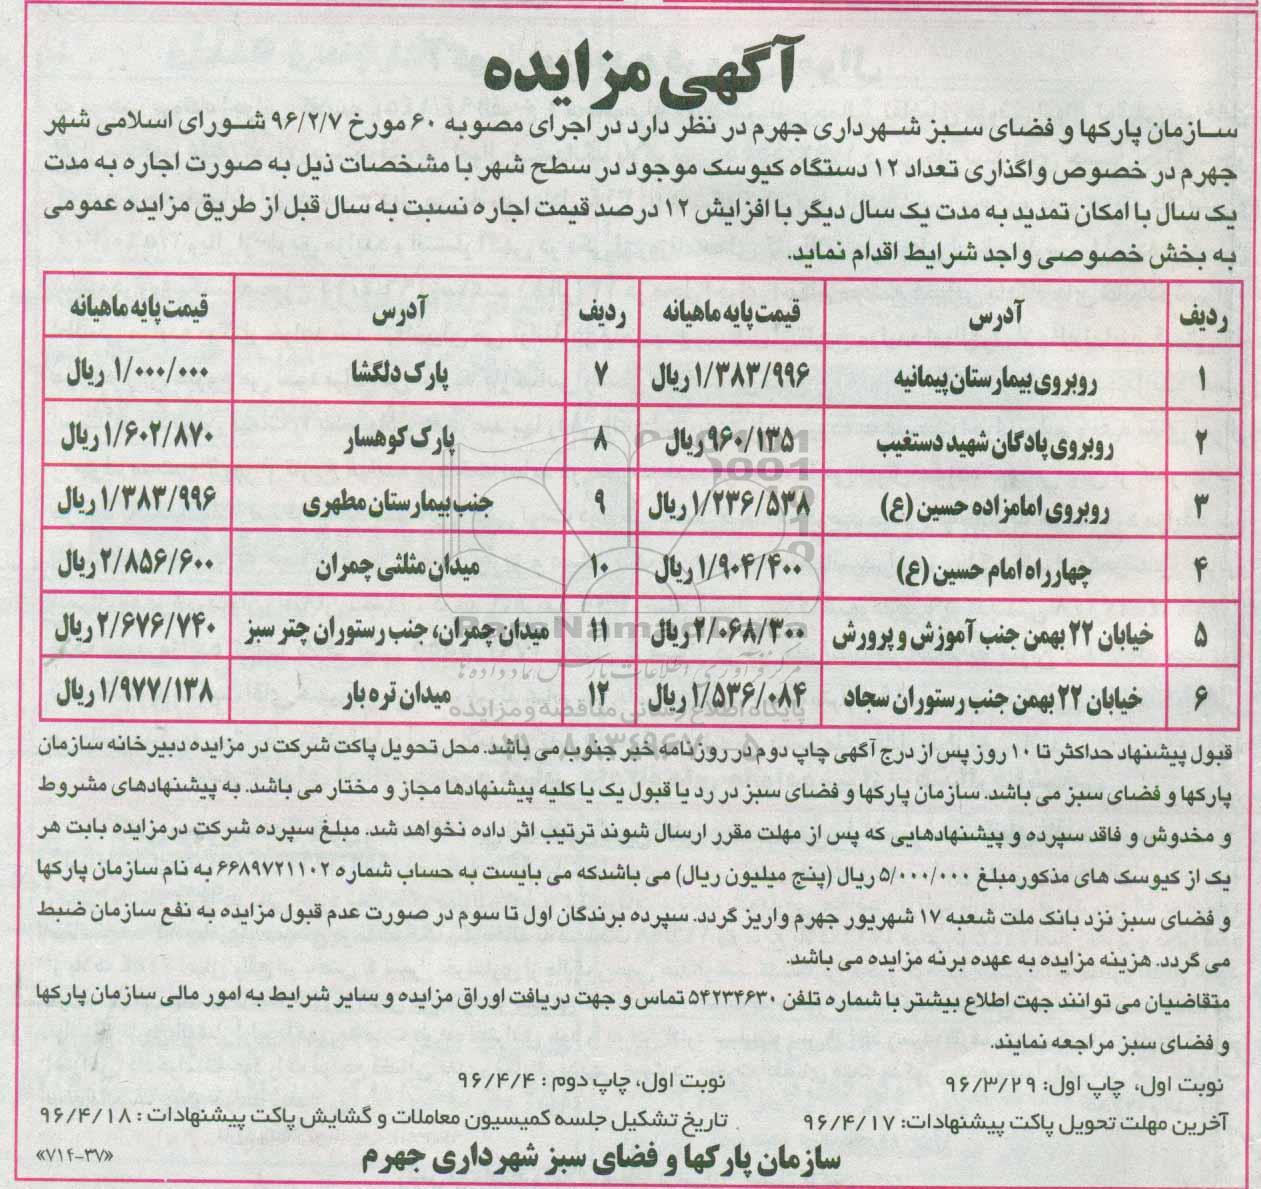 آگهی مزایده
سازمان پارکها و فضای سبز شهرداری جهرم در نظر دارد در اجرای مصوبه ۶۰ مورخ ۹۶/۲/۷ شورای اسلامی شهر
جهرم در خصوص واگذاری تعداد ۱۲ دستگاه کیوسک موجود در سطح شهر با مشخصات ذیل به صورت اجاره به مدت
یک سال با امکان تمدید به مدت یک سال دیگر با افزایش ۱۲ درصد قیمت اجاره نسبت به سال قبل از طریق مزایده عمومی
به بخش خصوصی واجد شرایط اقدام نماید.
ردیف آدرس قیمت پایه ماهیانه ردیف آدرس قیمت پایه ماهیانه
۱ روبروی بیمارستان پیمانیه ۱/۳۸۳/۹۹۶ ریال ۷ پارک دلگشا ۱/۰۰۰/۰۰۰ ریال
۲ روبروی پادگان شهید دستغیب ۹۶۰/۱۳۵ ریال ۸ پارک کوهسار ۱/۶۰۲/۸۷۰ ریال
۳ روبروی امامزاده حسین (ع) ۱/۲۳۶/۵۳۸ ریال ۹ جنب بیمارستان مطهری ۱/۳۸۳/۹۹۶ ریال
۴ چهارراه امام حسین (ع) ۱/۹۰۴/۴۰۰ ریال ۱۰ میدان مثلثی چمران ۲/۸۵۶/۶۰۰ ریال
۵ خیابان ۲۲ بهمن جنب آموزش و پرورش ۲/۰۶۸/۳۰۰ ریال ۱۱ میدان چمران، جنب رستوران چتر سبز ۲/۶۷۶/۷۴۰ ریال
۶ خیابان ۲۲ بهمن جنب رستوران سجاد ۱/۵۳۶/۰۸۴ ریال ۱۲ میدان تره بار ۱/۹۷۷/۱۳۸ ریال
قبول پیشنهاد حداکثر تا ۱۰ روز پس از درج آگهی چاپ دوم در روزنامه خبر جنوب می باشد. محل تحویل پاکت شرکت در مزایده دبیرخانه سازمان
پارکها و فضای سبز می باشد. سازمان پارکها و فضای سبز در رد یا قبول یک یا کلیه پیشنهادها مجاز و مختار می باشد. به پیشنهادهای مشروط
و مخدوش و فاقد سپرده و پیشنهادهایی که پس از مهلت مقرر ارسال شوند ترتیب اثر داده نخواهد شد. مبلغ سپرده شرکت درمزایده بابت هر
یک از کیوسک های مذکور مبلغ ۵/۰۰۰/۰۰۰ ریال (پنج میلیون ریال) می باشدکه می بایست به حساب شماره ۶۶۸۹۷۲۱۱۰۲ به نام سازمان پارکها
و فضای سبز نزد بانک ملت شعبه ۱۷ شهریور جهرم واریز گردد. سپرده برندگان اول تا سوم در صورت عدم قبول مزایده به نفع سازمان ضبط
می گردد. هزینه مزایده به عهده برنه مزایده می باشد.
متقاضیان می توانند جهت اطلاع بیشتر با شماره تلفن ۵۴۲۳۴۶۳۰ تماس و جهت دریافت اوراق مزایده و سایر شرایط به امور مالی سازمان پارکها
و فضای سبز مراجعه نمایند.
نوبت اول، چاپ اول: ۹۶/۳/۲۹ نوبت اول، چاپ دوم : ۹۶/۴/۴
آخرین مهلت تحویل پاکت پیشنهادات: ۹۶/۴/۱۷ تاریخ تشکیل جلسه کمیسیون معاملات و گشایش پاکت پیشنهادات : ۹۶/۴/۱۸
سازمان پارکها و فضای سبز شهرداری جهرم
«۷۱۴-۳۷»
پایگاه اطلاع رسانی مناقصه و مزایده